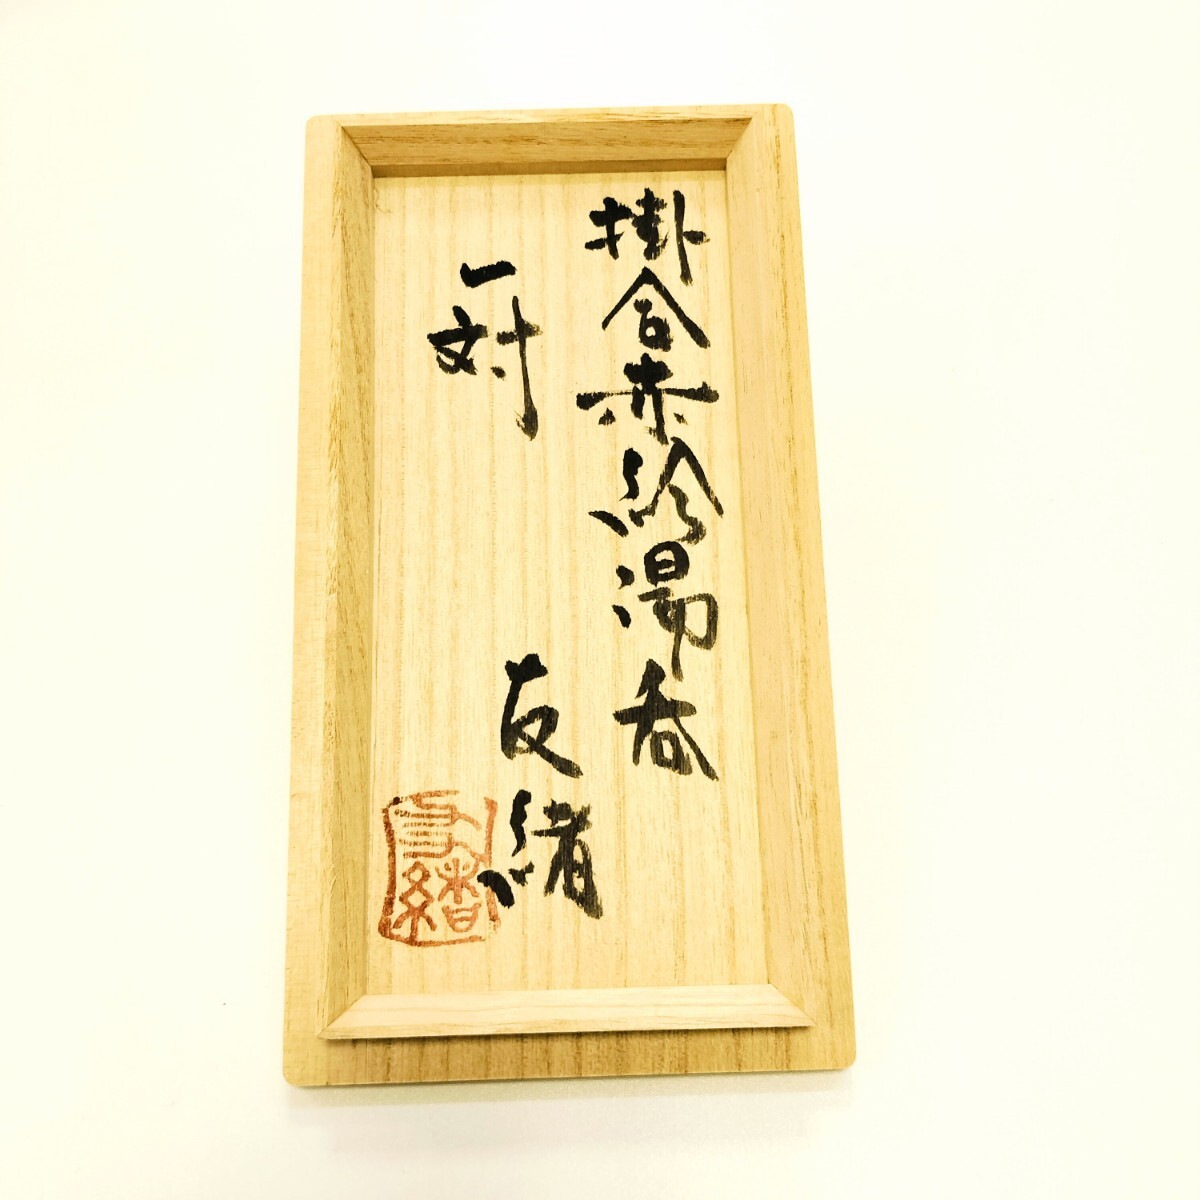 掛合赤絵湯呑
一対
友緒
友緒